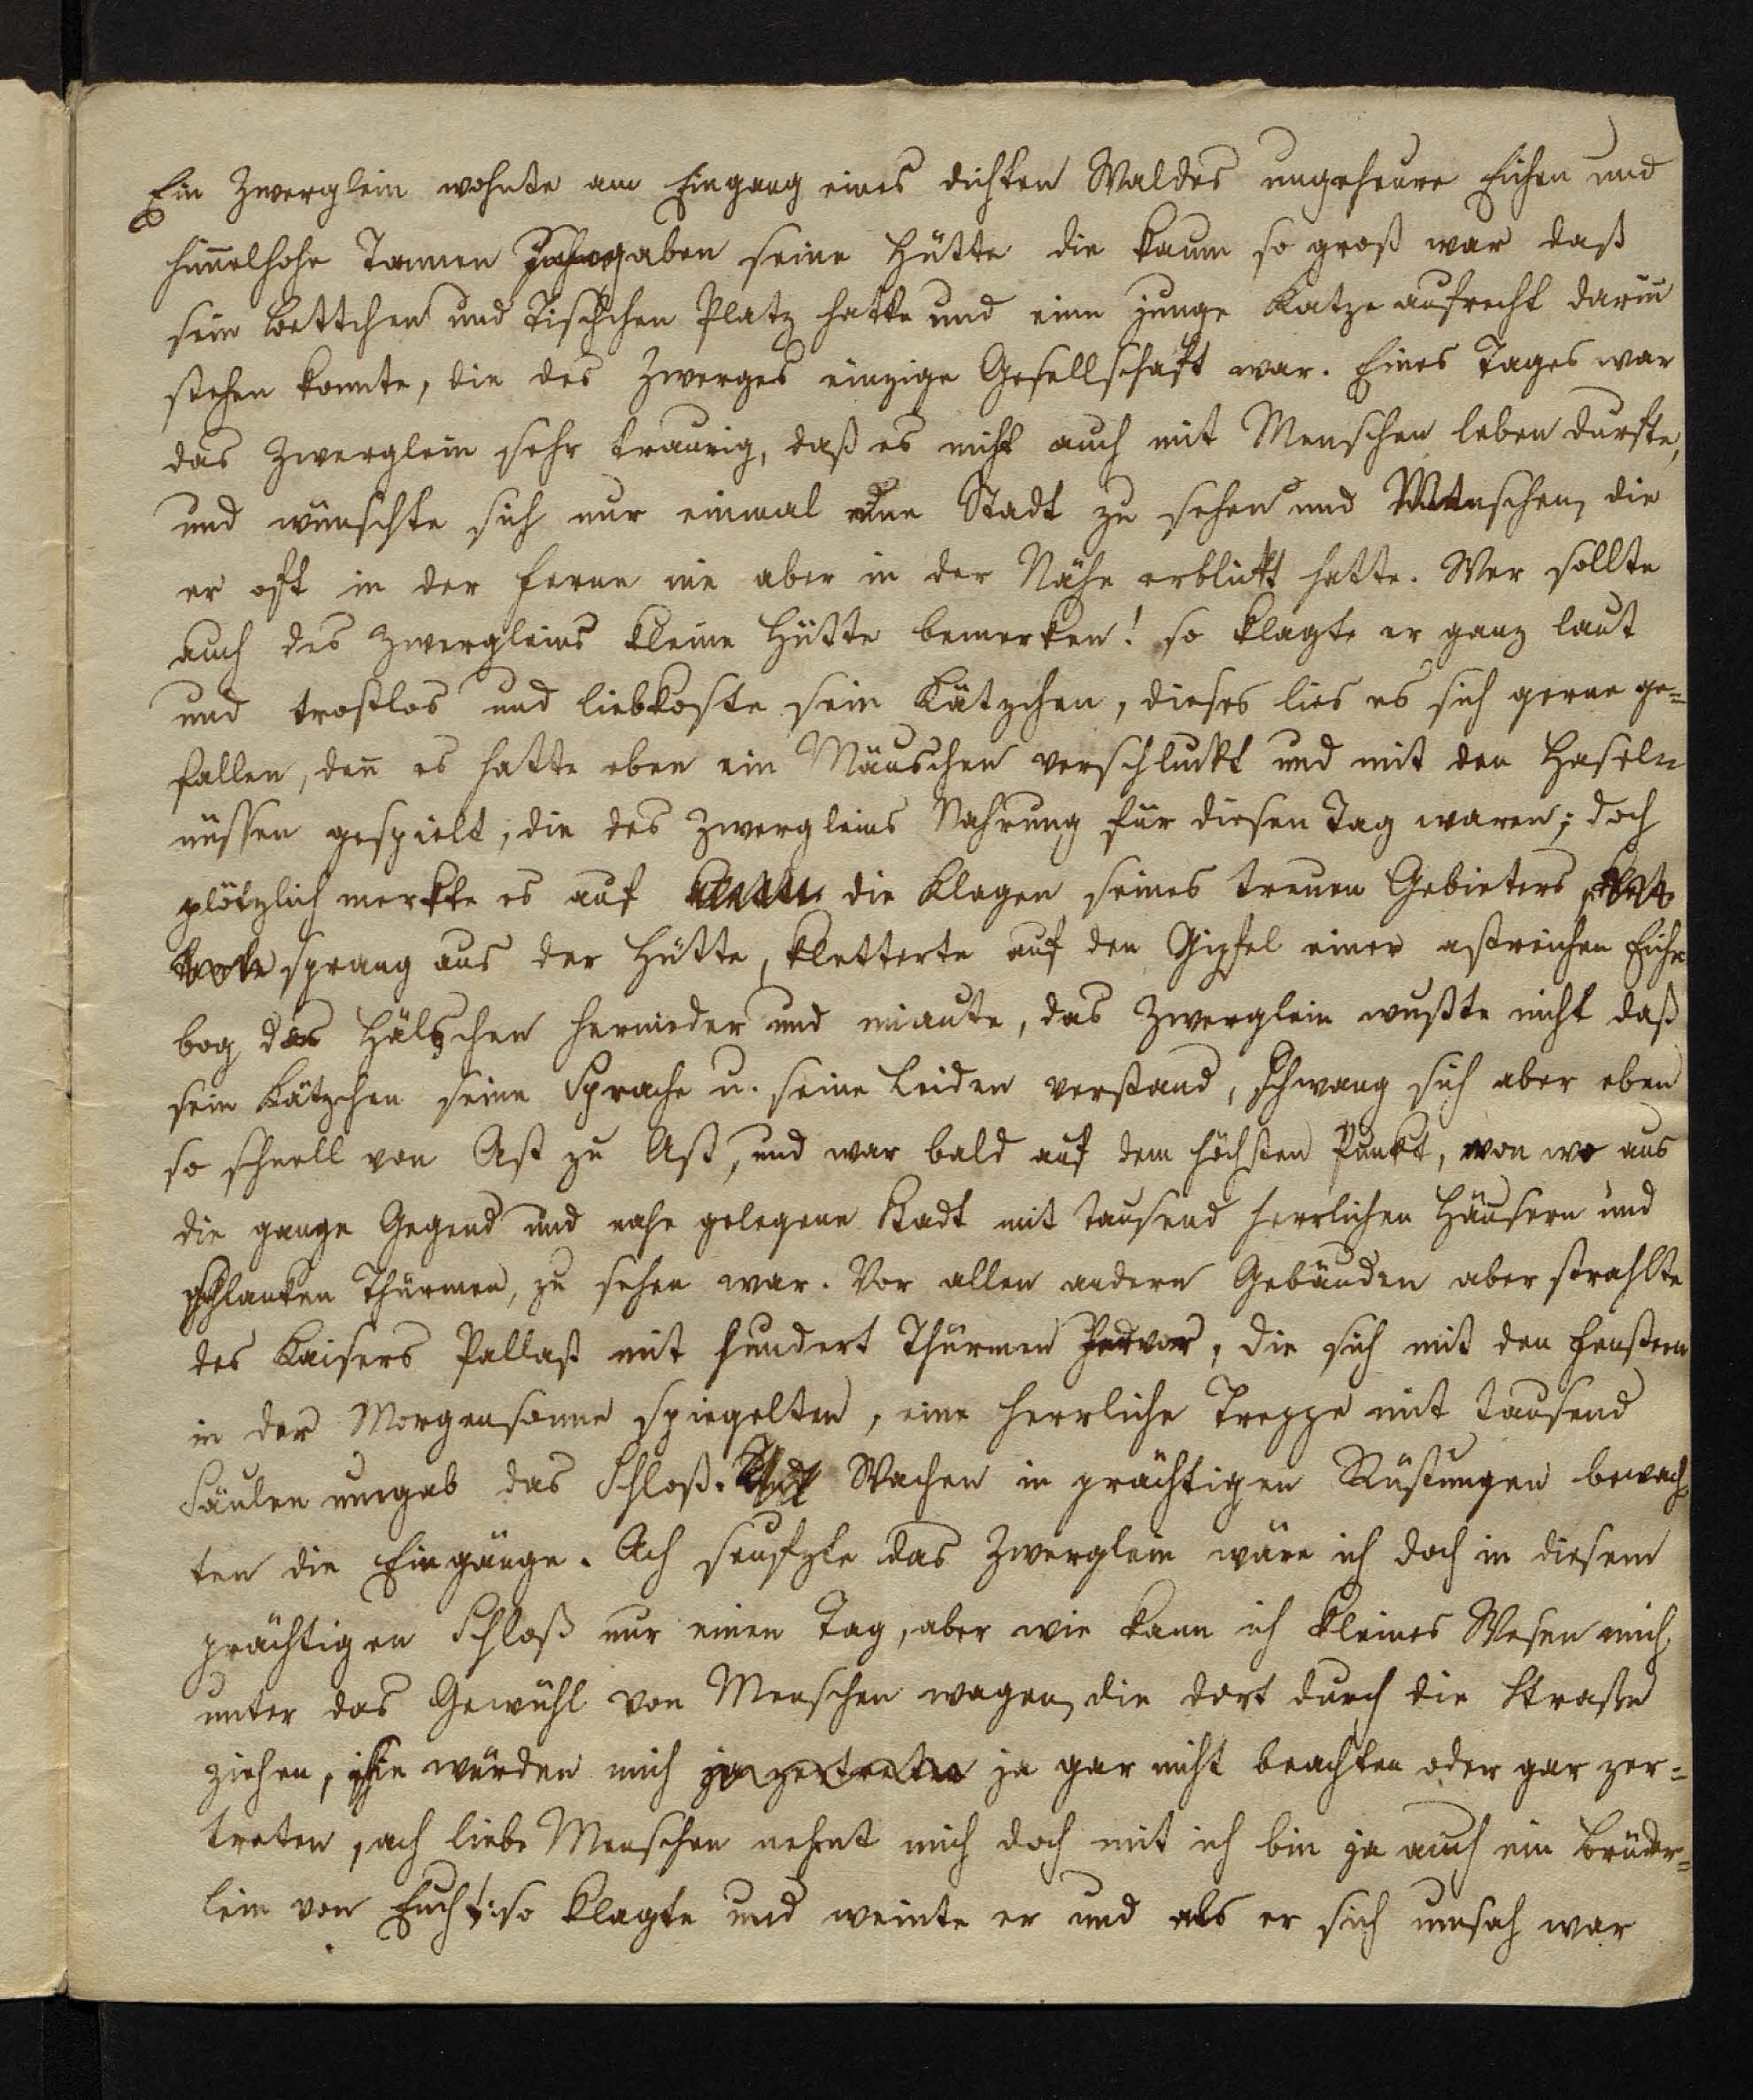 Ein Zwerglein wohnte am Eingang eines dichten Waldes ungeheure Eichen und
himelhohe Tannen umgaben seine Hütte die kaum so groß war daß
sein Bettchen und Tischchen Platz hatte und eine junge Katze aufrecht darin
stehen konnte, die des Zwerges einzige Gesellschaft war. Eines Tages war
das Zwerglein sehr traurig, daß es nicht auch mit Menschen leben durfte,
und wünschte sich nur einmal eine Stadt zu sehen und Menschen, die
er oft in der Ferne nie aber in der Nähe erblickt hatte. Wer sollte
auch des Zwergleins kleine Hütte bemerken! so klagte er ganz laut
und trostlos und liebkoste sein Kätzchen, dieses lies es sich gerne ge=
fallen, den es hatte eben ein Mäuschen verschluckt und mit den Haseln
nüssen gespielt, die des Zwergleins Nahrung für diesen Tag waren; doch
plötzlich merkte es auf die Klagen seines treuen Gebieters
sprang aus der Hütte, kletterte auf den Gipfel einer astreichen Eiche
bog das Hälschen hernieder und miaute, das Zwerglein wußte nicht daß
sein Kätzchen seine Sprache u. seine Leiden verstand, schwang sich aber eben
so schnell von Ast zu Ast, und war bald auf dem höchsten Punkt, von wo aus
die ganze Gegend und nahe gelegene Stadt mit tausend herrlichen Häusern und
schlanken Thürmen, zu sehen war. Vor allen andern Gebäuden aber strahlte
des Kaisers Pallast mit hundert Thürmen hervor, die sich mit den Fenstern
in der Morgensonne spiegelten, eine herrliche Treppe mit tausend
Säulen umgab das Schloß. Wachen in prächtigen Rüstungen bewach
ten die Eingänge. Ach seufzte das Zwerglein wäre ich doch in diesem
prächtigen Schloß nur einen Tag, aber wie kann ich kleines Wesen mich
unter das Gewühl von Menschen wagen, die dort durch die Straße
ziehen, sie würden mich ja zertreten ja gar nicht beachten oder gar zer=
treten, ach liebe Menschen nehmt mich doch mit ich bin ja auch ein Brüder=
lein von Euch!: so klagte und weinte er und als er sich umsah war